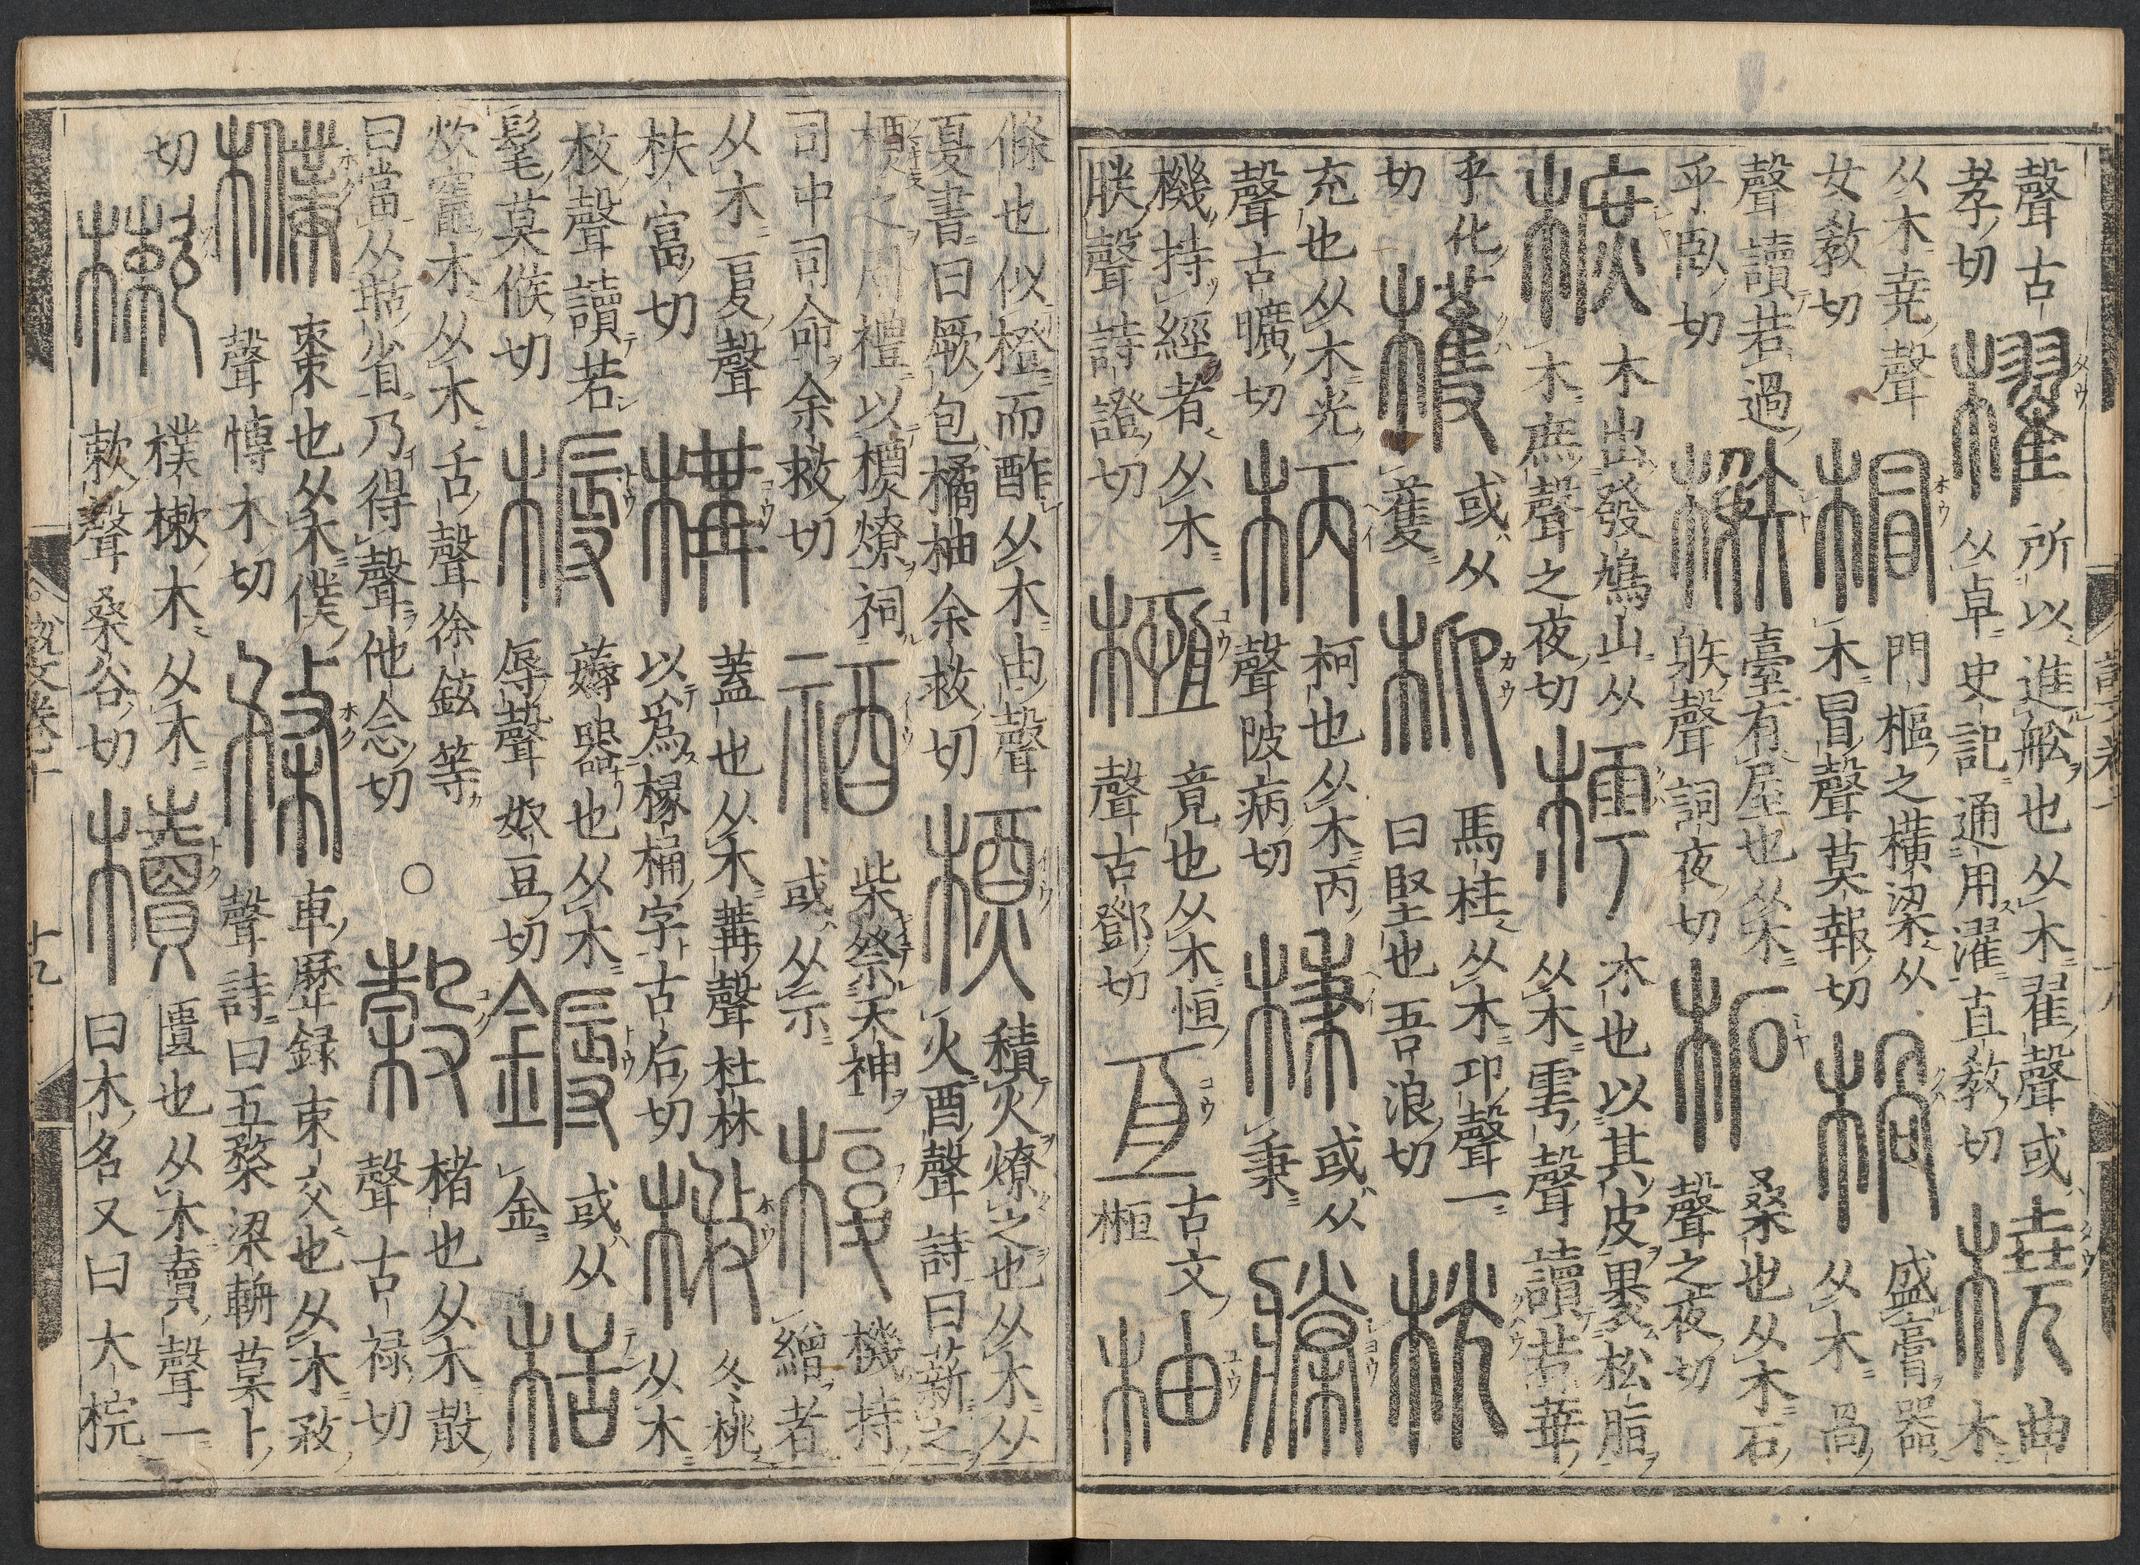 聲古
孝切
櫂
所以進舩也从木翟聲或
从卓史記通用濯直教切
橈
曲
木
从木尭聲
女教切
椙
門樞之橫梁从
木冒聲莫報切
楇
盛膏器
从木咼
聲讀若過
乎臥切
榭
臺有屋也从木
䠶聲詞夜切
柘
桑也从木石
聲之夜切
樜
木出發鳩山从
木庶聲之夜切
樗
木也以其皮裹松脂
从木雩聲讀若華
乎化
切
檴
或从
蒦
枊
馬柱从木卬聲一
曰堅也吾浪切
桄
充也从木光
聲古曠切
柄
柯也从木丙
聲陂病切
棅
或从
秉
榺
機持經者从木
朕聲詩證切
㮓
竟也从木恒
聲古鄧切
亙
古文
㮓
柚
條也似橙而酢从木由聲
夏書曰厥包橘柚余救切
槱
積火燎之也从木从
火酉聲詩曰薪之
槱之周禮以槱燎祠
司中司命余救切
禉
柴祭天神
或从示
椱
機持
繒者
从木复聲
扶富切
構
蓋也从木冓聲杜林
以爲椽桷字古后切
楙
冬桃
从木
敄聲讀若
髦莫候切
槈
薅器也从木
辱聲奴豆切
鎒
或从
金
栝
炊竈木从木舌聲徐鉉等
曰當从甛省乃得聲他念切
○
榖
楮也从木㱿
聲古禄切
㯷
棗也从木僕
聲愽木切
楘
車歷録束交也从木敄
聲詩曰五楘梁輈莫卜
切
樕
樸樕木从木
敕聲桑谷切
櫝
匱也从木賣聲一
曰木名又曰大梡
說文卷十
十九